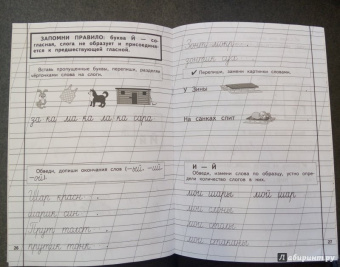 ЗАПОМНИ ПРАВИЛО: буква Й — со-
гласная, слога не образует и присоединя-
ется к предшествующей гласной.
Вставь пропущенные буквы, перепиши, раздели
чёрточками слова на слоги.
за ка ма ка ла ка сара
Обведи, допиши окончания слов (-ый, -ий,
-ой).
Шар красн
шарик син
Прут
прутик тонк
26
✔ Перепиши, замени картинки словами.
У Зины
На санках спит
И — Й
Обведи, измени слова по образцу, устно опре-
дели количество слогов в них.
мои шары мой шар
мои слоны
мои
мои стаканы
27
Лабиринт.ру